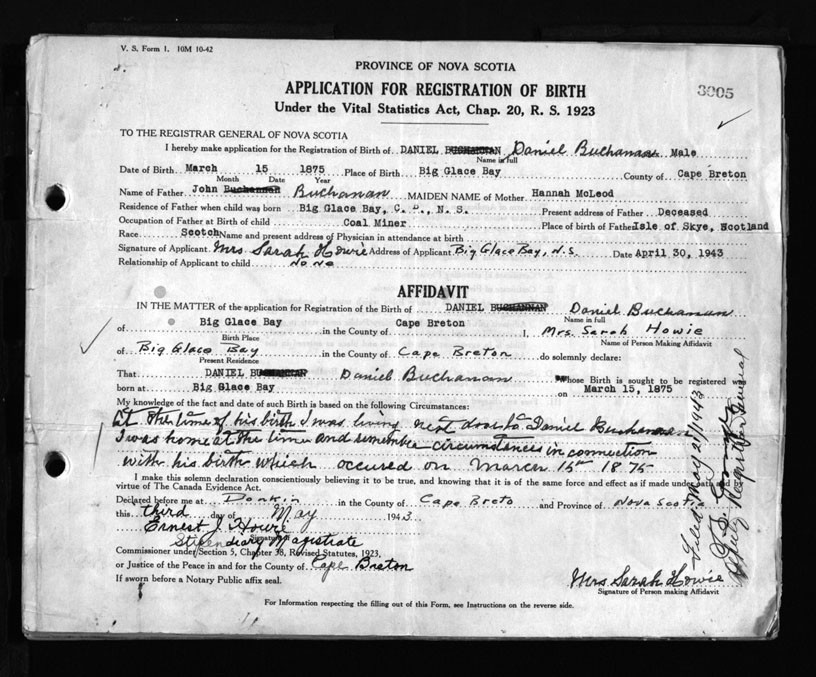 V. S. Form 1. 10M 10-42
PROVINCE OF NOVA SCOTIA
3005
APPLICATION FOR REGISTRATION OF BIRTH
Under the Vital Statistics Act, Chap. 20, R. S. 1923
TO THE REGISTRAR GENERAL OF NOVA SCOTIA
I hereby make application for the Registration of Birth of DANIEL BUCHANNAN Daniel Buchanan Male
Name in full
Date of Birth March 15 1875 Place of Birth Big Glace Bay County of Cape Breton
Month Date Year
Name of Father John Buchannan Buchanan MAIDEN NAME of Mother Hannah McLeod
Residence of Father when child was born Big Glace Bay, C. B., N. S. Present address of Father Deceased
Occupation of Father at Birth of child Coal Miner Place of birth of Father Isle of Skye, Scotland
Race Scotch Name and present address of Physician in attendance at birth
Signature of Applicant Mrs. Sarah Howie Address of Applicant Big Glace Bay, N.S. Date April 30, 1943
Relationship of Applicant to child None
AFFIDAVIT
IN THE MATTER of the application for Registration of the Birth of DANIEL BUCHANNAN Daniel Buchanan
Name in full
of Big Glace Bay in the County of Cape Breton I, Mrs. Sarah Howie
Birth Place Name of Person Making Affidavit
of Big Glace Bay in the County of Cape Breton do solemnly declare:
Present Residence
That DANIEL BUCHANNAN Daniel Buchanan Whose Birth is sought to be registered was
born at Big Glace Bay on March 15, 1875
My knowledge of the fact and date of such Birth is based on the following Circumstances:
At the time of his birth I was living next door to Daniel Buchanan
I was home at the time and remember circumstances in connection
with his birth which occured on March 15th 1875
I make this solemn declaration conscientiously believing it to be true, and knowing that it is of the same force and effect as if made under oath and by
virtue of The Canada Evidence Act.
Declared before me at Donkin in the County of Cape Breto and Province of Nova Scotia
this third day of May 1943
Ernest J. Howie
Signature of
Stipendiary Magistrate
Commissioner under Section 5, Chapter 38, Revised Statutes, 1923,
or Justice of the Peace in and for the County of Cape Breton
If sworn before a Notary Public affix seal.
Mrs. Sarah Howie
Signature of Person making Affidavit
For Information respecting the filling out of this Form, see Instructions on the reverse side.
Filed May 21/1943
Deputy Registrar General